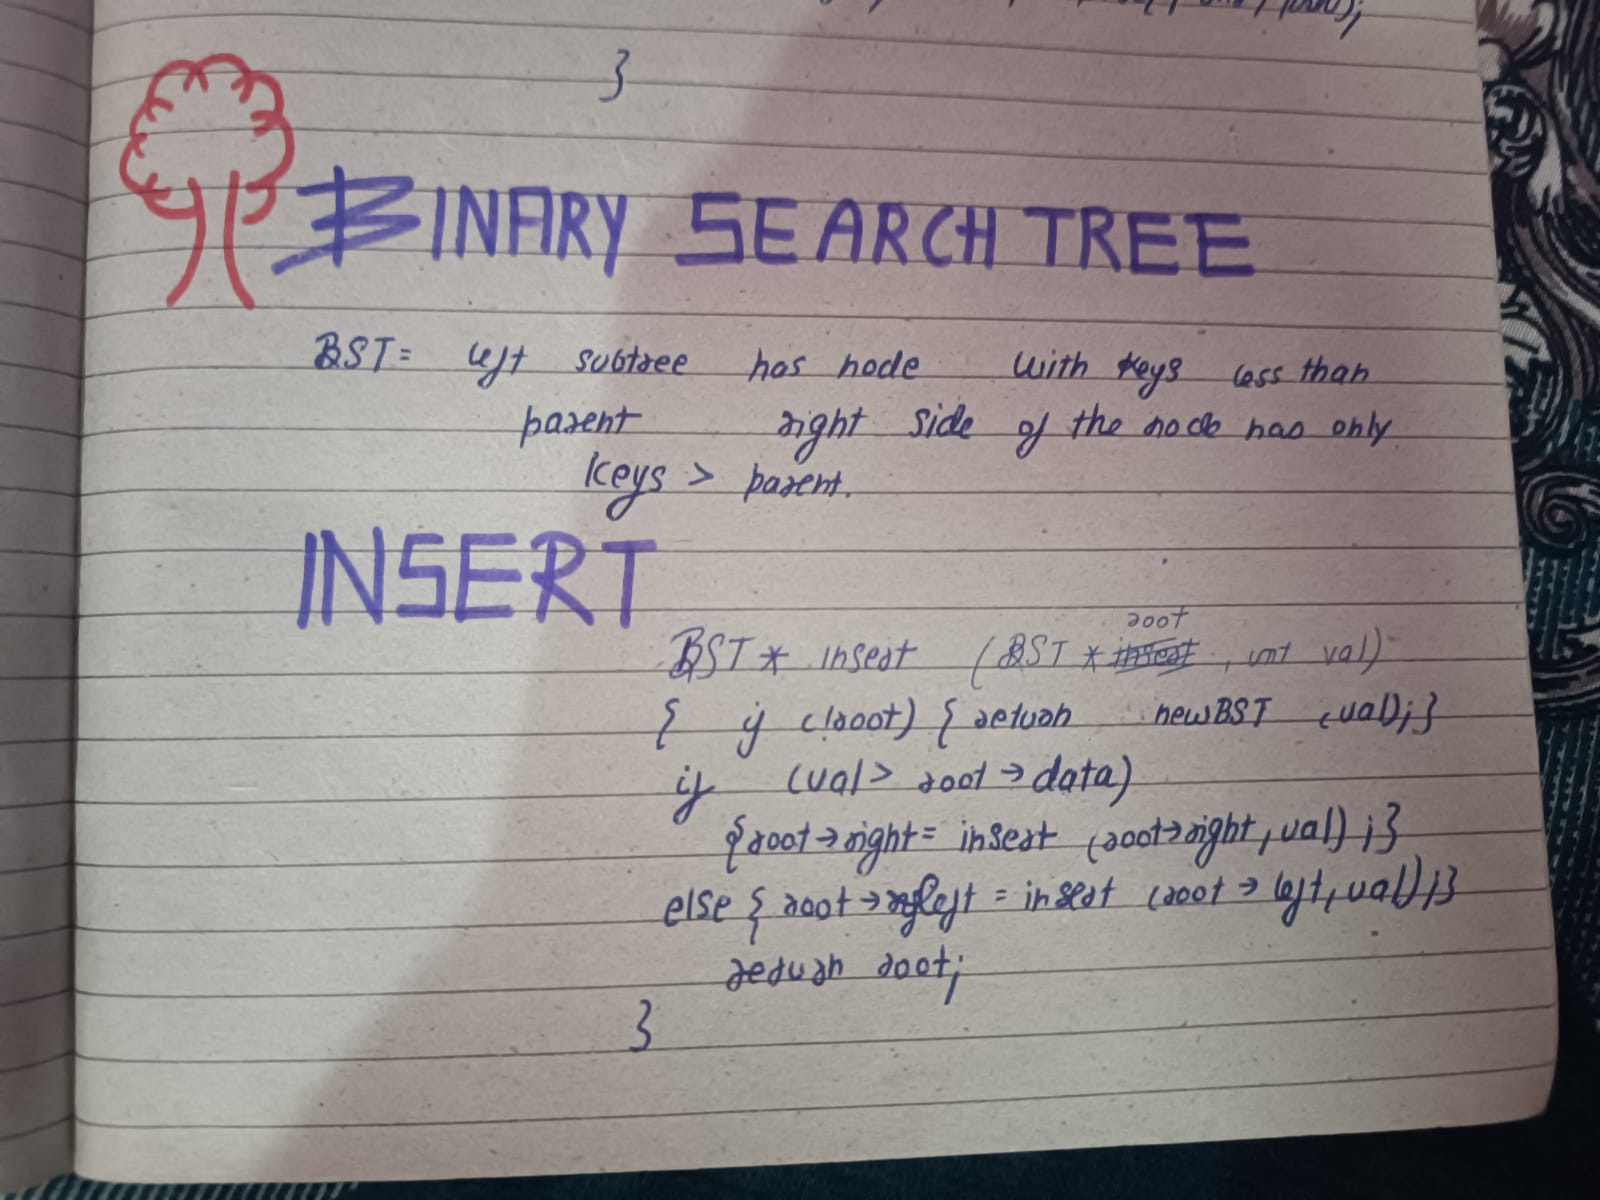 }
BINARY SEARCH TREE
BST = left subtree has node with keys less than
parent right side of the node has only
keys > parent.
INSERT
root
BST* insert (BST * insert, int val)
{ if (!root) { return newBST (val);}
if (val > root → data)
{root → right = insert (root→right, val) ;}
else { root → left = insert (root → left, val);}
return root;
}